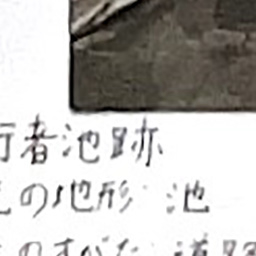 行者池跡
の地形 池
のすがた 道跡